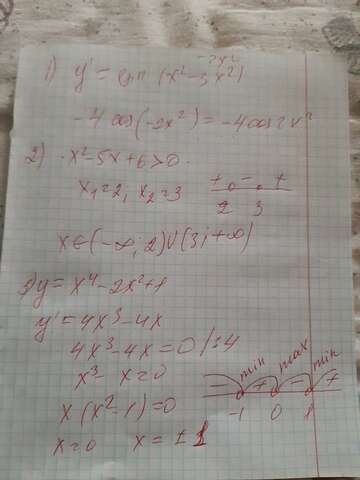 -2x²
1) y' = sin (x²-3x²)
-4 cos(-2x²) = -4cos2x²
2) x²-5x+6>0.
x₁=2; x₂=3
+ - +
2 3
x∈(-∞; 2)∪(3; +∞)
3) y = x⁴-2x²+1
y' = 4x³-4x
4x³-4x=0 /:4
x³-x=0
x(x²-1)=0
x=0 x = ±1
min max min
- + - +
-1 0 1